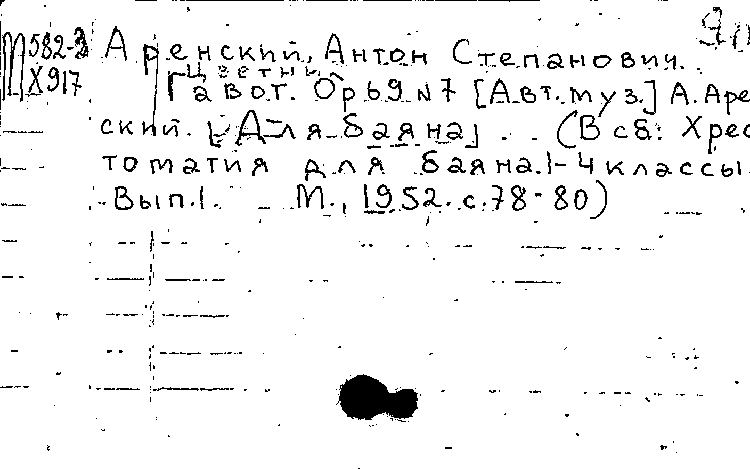 М582-3 Аренский, Антон Степанович.
Х917 Цветни
Гавот. Ор 69 N 7 [Авт. муз.] А. Арен
ский. [Для баяна] . . (В сб: Хрес
томатия для баяна. 1-4 классы.
Вып. 1. М., 1952. с. 78-80)